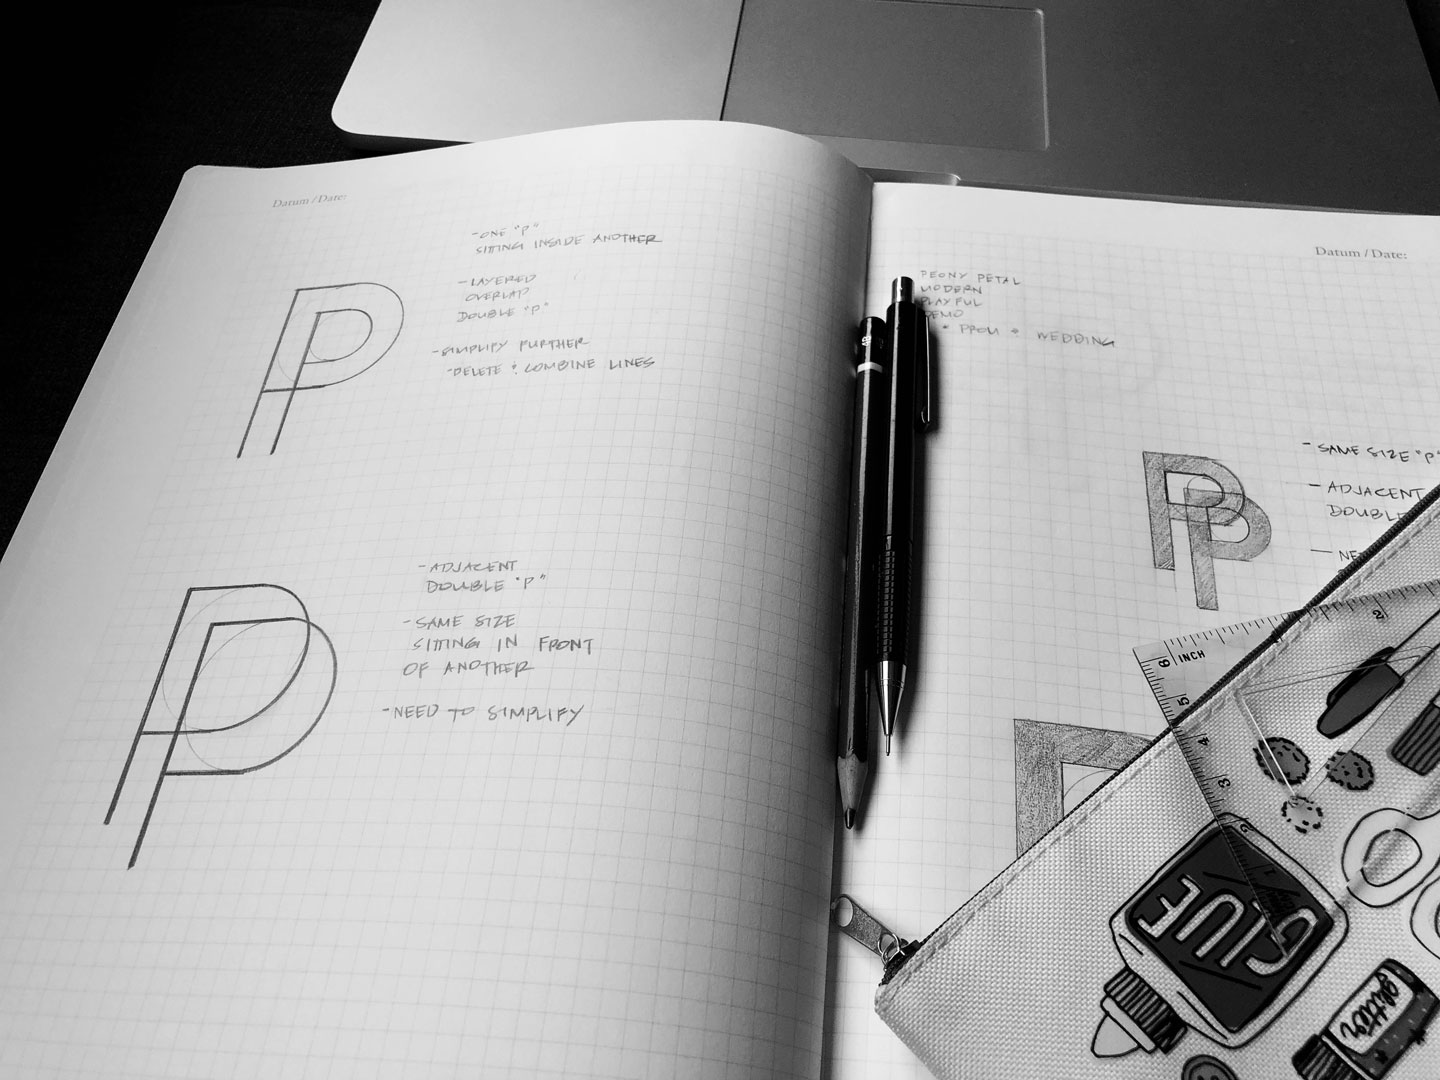 Datum / Date:
-ONE "P"
SITTING INSIDE ANOTHER
-LAYERED
OVERLAP
DOUBLE "P"
-SIMPLIFY FURTHER
-DELETE & COMBINE LINES
-ADJACENT
DOUBLE "P"
-SAME SIZE
SITTING IN FRONT
OF ANOTHER
-NEED TO SIMPLIFY
Datum / Date:
PEONY PETAL
MODERN
PLAYFUL
DEMO
* PROM & WEDDING
-SAME SIZE "P"
-ADJACENT
DOUBLE
INCH
6
5
4
3
2
1
2
GLUE
glitter